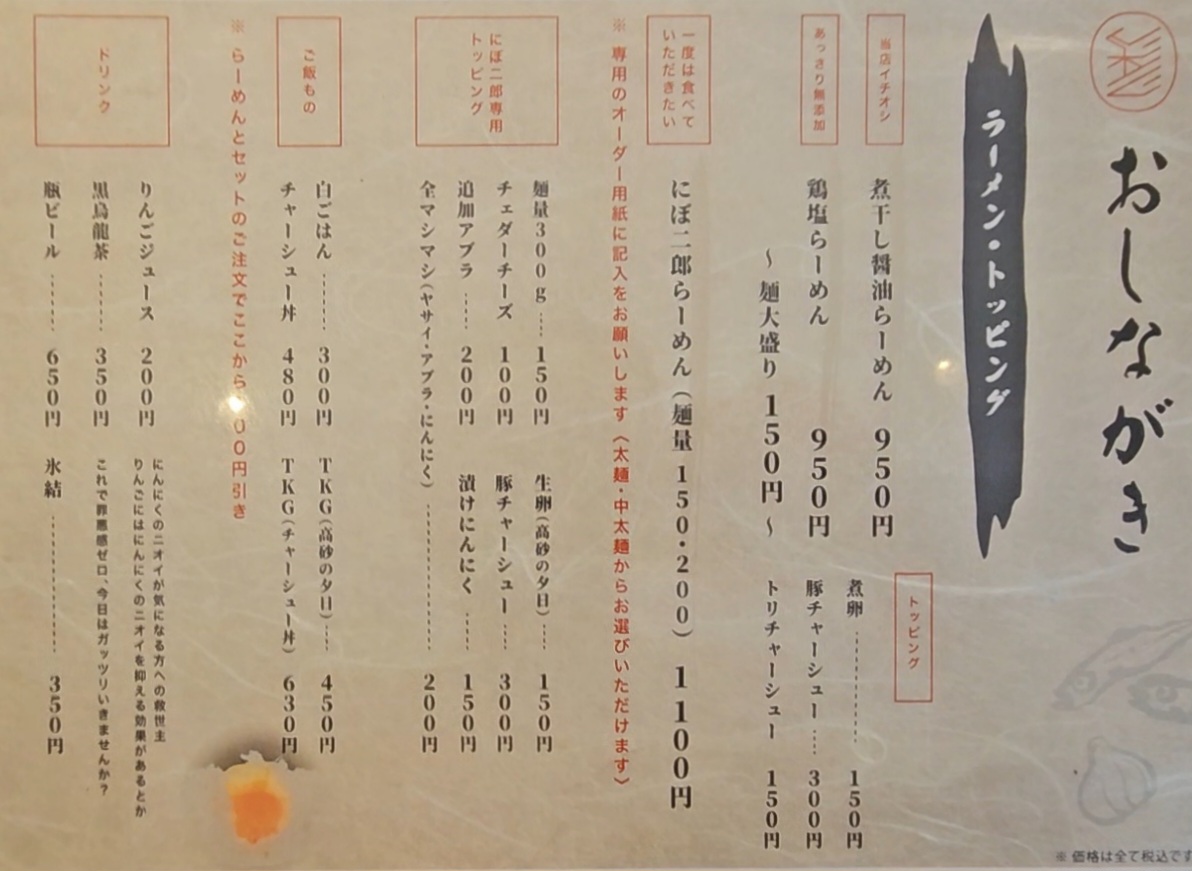 おしながき
ラーメン・トッピング
当店イチオシ
煮干し醤油らーめん 950円
あっさり無添加
鶏塩らーめん 950円
～麺大盛り 150円～
トッピング
煮卵 ………… 150円
豚チャーシュー …… 300円
トリチャーシュー 150円
一度は食べて
いただきたい
にぼ二郎らーめん(麺量 150・200) 1100円
※ 専用のオーダー用紙に記入をお願いします〈太麺・中太麺からお選びいただけます〉
にぼ二郎専用
トッピング
麺量300g …… 150円
チェダーチーズ 100円
追加アブラ …… 200円
生卵(高砂の夕日) …… 150円
豚チャーシュー …… 300円
漬けにんにく …… 150円
全マシマシ(ヤサイ・アブラ・にんにく) ………… 200円
ご飯もの
白ごはん …… 300円
チャーシュー丼 480円
TKG(高砂の夕日) …… 450円
TKG(チャーシュー丼) 630円
※ らーめんとセットのご注文でここから 00円引き
ドリンク
りんごジュース 200円
黒烏龍茶 …… 350円
瓶ビール …… 650円
にんにくのニオイが気になる方への救世主
りんごにはにんにくのニオイを抑える効果があるとか
これで罪悪感ゼロ、今日はガッツリいきませんか？
氷結 ………… 350円
※ 価格は全て税込です